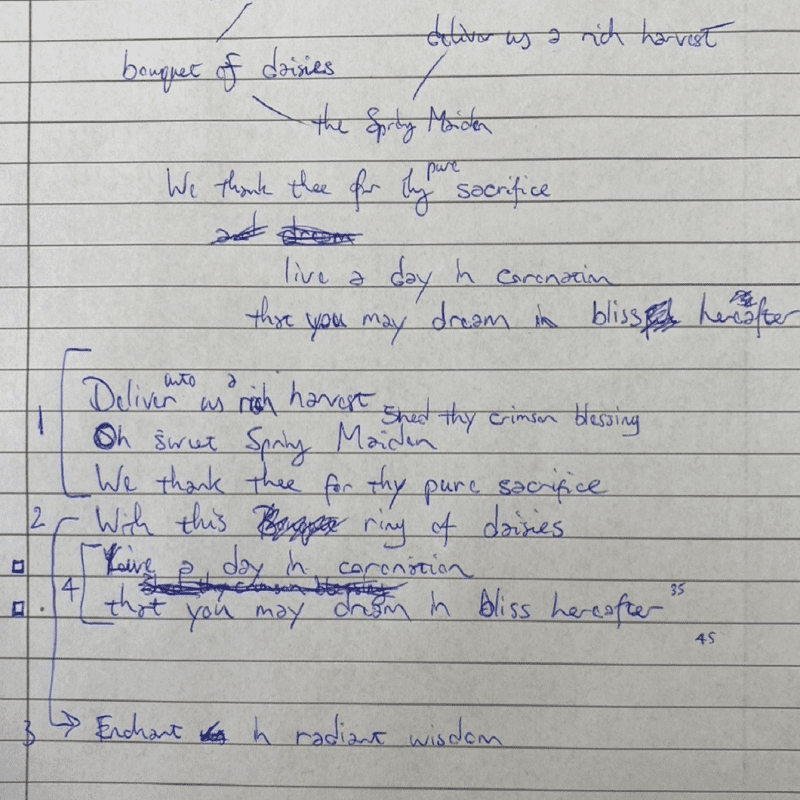 deliver us a rich harvest
bouquet of daisies
the Spring Maiden
We thank thee for thy pure sacrifice
and dream
live a day in coronation
that you may dream in bliss hereafter
1
Deliver unto us a rich harvest
Shed thy crimson blessing
Oh sweet Spring Maiden
We thank thee for thy pure sacrifice
2 With this ring of daisies
4 Live a day in coronation
Shed thy crimson blessing
that you may dream in bliss hereafter 35
45
3 Enchant in radiant wisdom